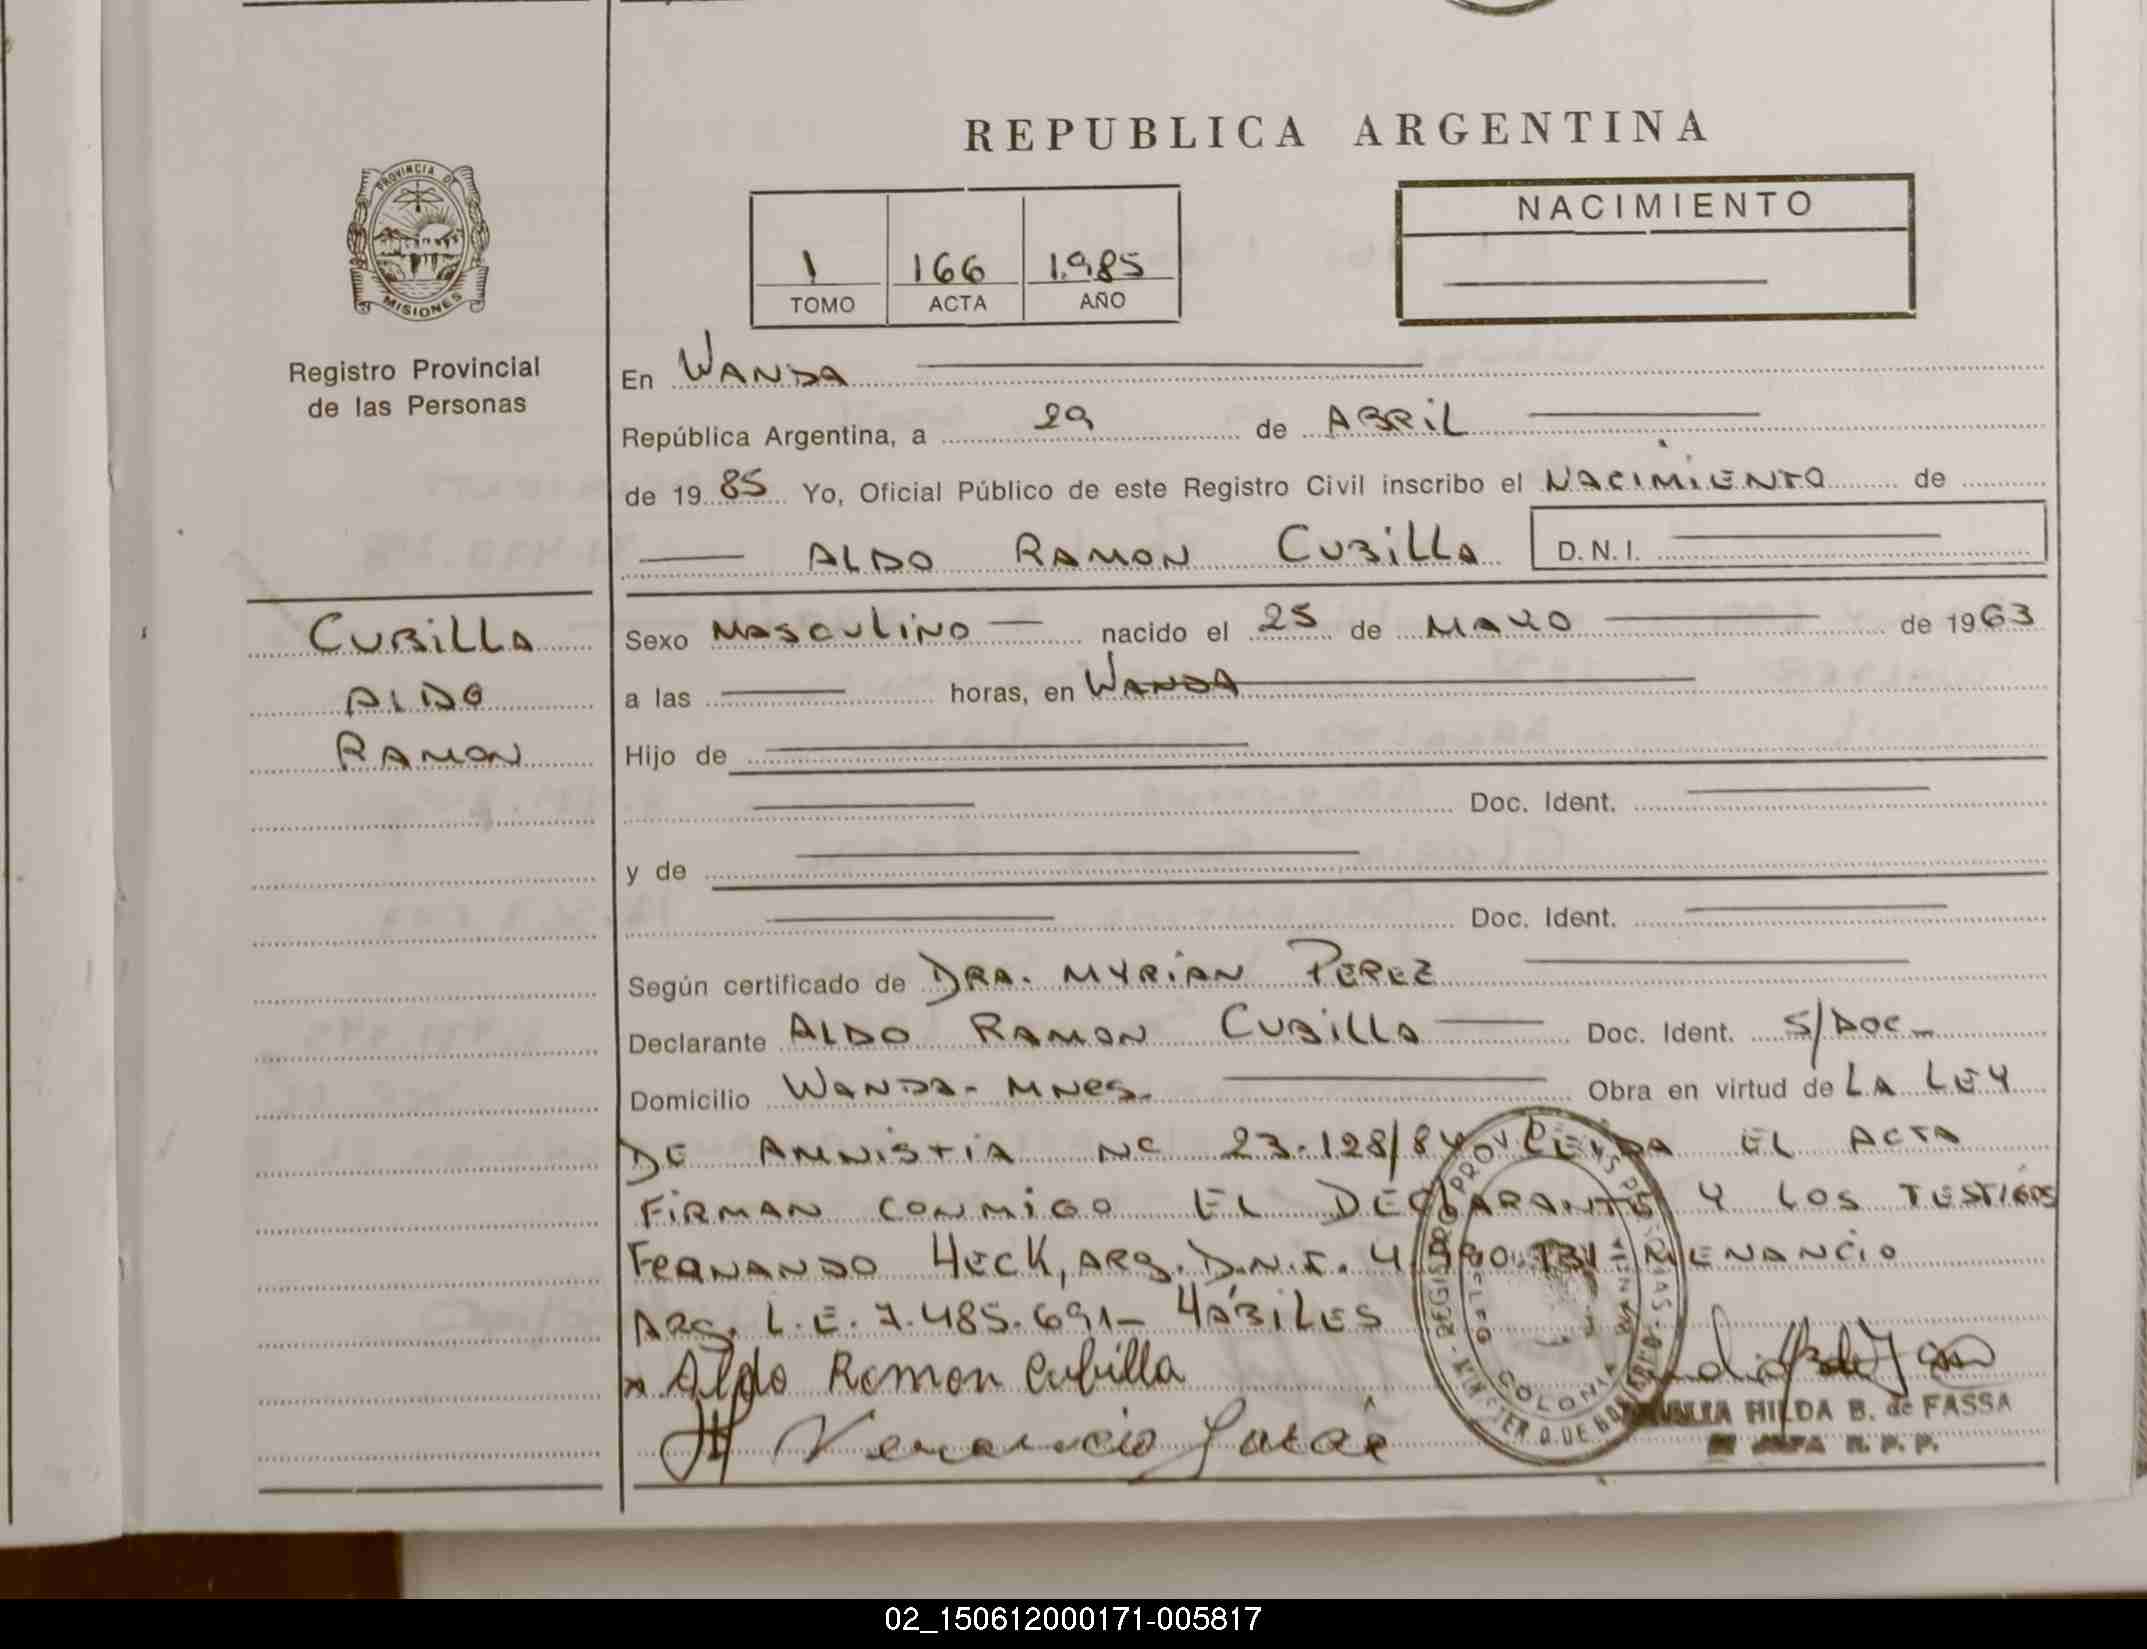 REPUBLICA ARGENTINA
PROVINCIA DE
MISIONES
Registro Provincial
de las Personas
1 166 1.985
TOMO ACTA AÑO
NACIMIENTO
En WANDA
República Argentina, a 29 de ABRIL
de 19 85 Yo, Oficial Público de este Registro Civil inscribo el NACIMIENTO de
ALDO RAMON CUBILLA D.N.I.
CUBILLA
ALDO
RAMON
Sexo MASCULINO nacido el 25 de MAYO de 1963
a las horas, en WANDA
Hijo de
Doc. Ident.
y de
Doc. Ident.
Según certificado de DRA. MYRIAN PEREZ
Declarante ALDO RAMON CUBILLA Doc. Ident. S/DOC.
Domicilio WANDA - MNES. Obra en virtud de LA LEY
DE AMNISTIA Nº 23.128/84 LEIDA EL ACTA
FIRMAN CONMIGO EL DECLARANTE Y LOS TESTIGOS
FERNANDO HECK, ARG. D.N.I. VENANCIO
ARG. L.E. 7.485.691- HÁBILES
x Aldo Ramon Cubilla
Venancio
HILDA B. de FASSA
R. P. P.
COLONIA
02_150612000171-005817